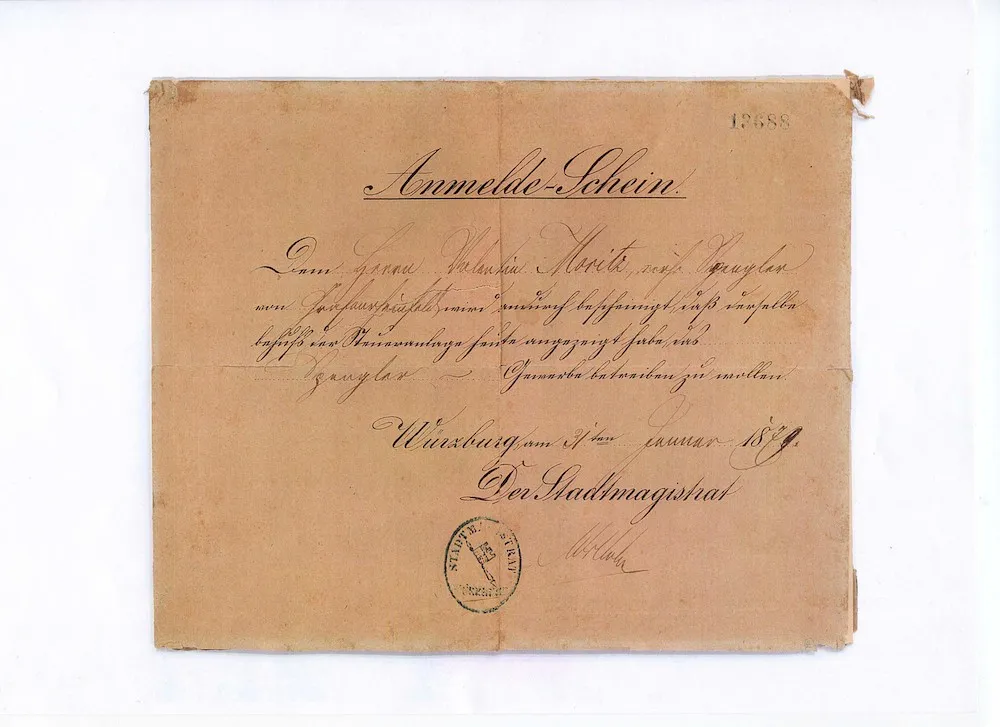 13688
Anmelde-Schein.
Dem Herrn Valentin Moritz, Spengler
von Grafenrheinfeld, wird andurch bescheinigt, daß derselbe
behufs der Steueranlage heute angezeigt habe, das
Spengler – Gewerbe betreiben zu wollen.
Würzburg, am 31ten Jenner 1879.
Der Stadtmagistrat
STADTMAGISTRAT